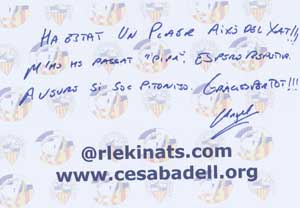 HA ESTAT UN PLAER AIXÒ DEL XAT!!!
M'HO HE PASSAT "PIPA". ESPERO REPETIR.
A VEURE SI SOC PITONISO. GRÀCIES PER TOT!!!
@rlekinats.com
www.cesabadell.org